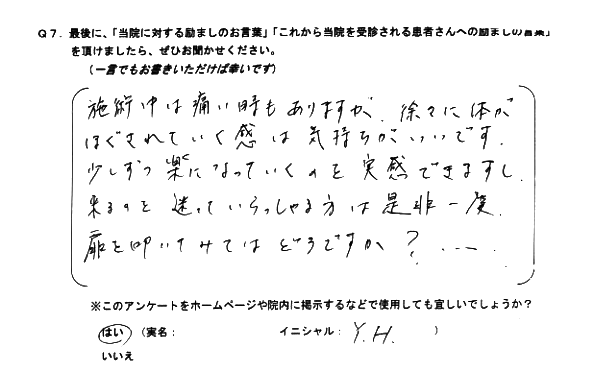 Q7. 最後に、「当院に対する励ましのお言葉」「これから当院を受診される患者さんへの励ましの言葉」
を頂けましたら、ぜひお聞かせください。
(一言でもお書きいただけば幸いです)
施術中は痛い時もありますが、徐々に体が
ほぐされていく感は気持ちがいいです.
少しずつ楽になっていくのを実感できますし.
来るのを迷っていらっしゃる方は是非一度.
扉を叩いてみてはどうですか?...
※このアンケートをホームページや院内に掲示するなどで使用しても宜しいでしょうか?
はい (実名: イニシャル: Y.H. )
いいえ